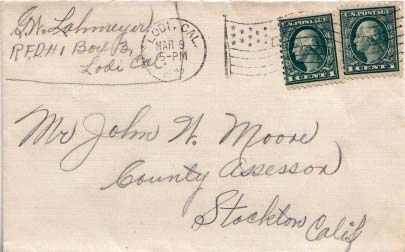 G.W. Lahmeyer
RFD#1 Box B,
Lodi Cal
LODI, CAL.
MAR 9
5-PM
U.S. POSTAGE
1 CENT 1
U.S. POSTAGE
1 CENT 1
Mr John W. Moore
County Assessor
Stockton Calif